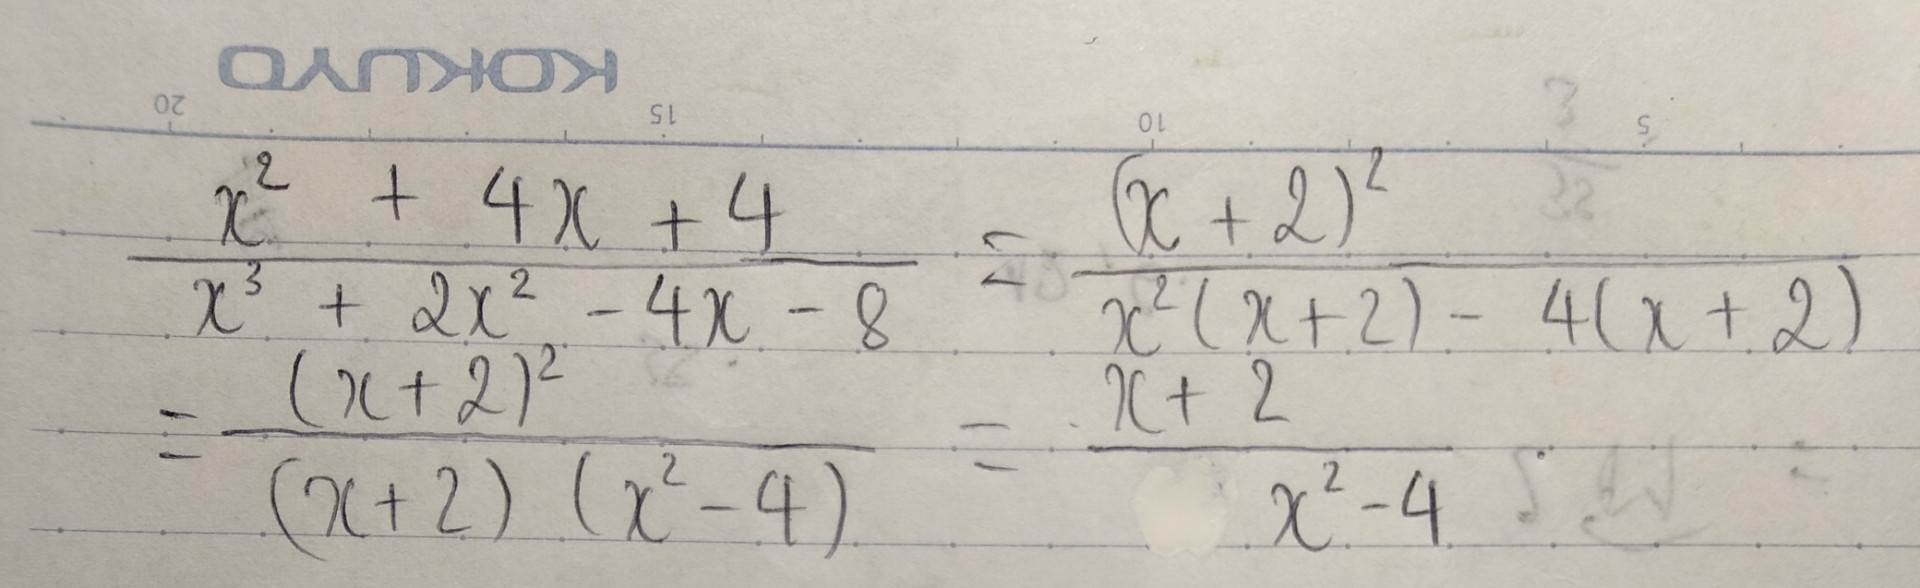 KOKUYO
20 15 10 5
x² + 4x + 4 / x³ + 2x² - 4x - 8 = (x + 2)² / x²(x+2) - 4(x + 2)
= (x+2)² / (x+2) (x²-4) = x + 2 / x²-4